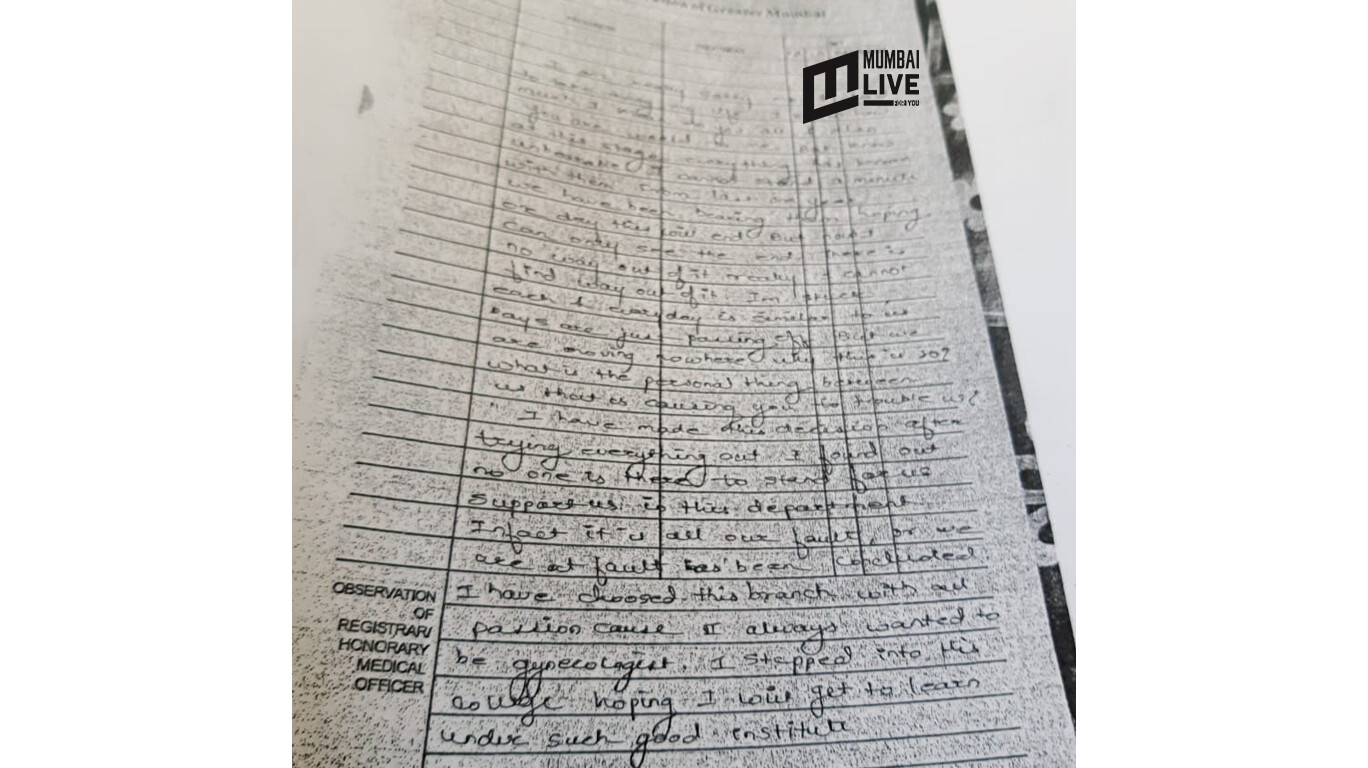 of Greater Mumbai
MUMBAI
LIVE
FOR YOU
I am very sorry
much I
you are
at this stage everything has become
unbearable I cannot spend a minute
with them from last one year
we have been bearing them hoping
one day this will end But now I
can only see the end There is
no way out of it really I cannot
find way out of it. Im stuck
each & everyday is similar to us
Days are just passing off But we
are moving nowhere why this is so?
what is the personal thing between
us that is causing you to trouble us?
I have made this decision after
trying everything out I found out
no one is there to stand for us
Support us in this department
Infact it is all our fault, or we
are at fault has been concluded
OBSERVATION
OF
REGISTRAR/
HONORARY
MEDICAL
OFFICER
I have choosed this branch with all
passion cause I always wanted to
be gynecologist. I stepped into this
college hoping I will get to learn
under such good institute